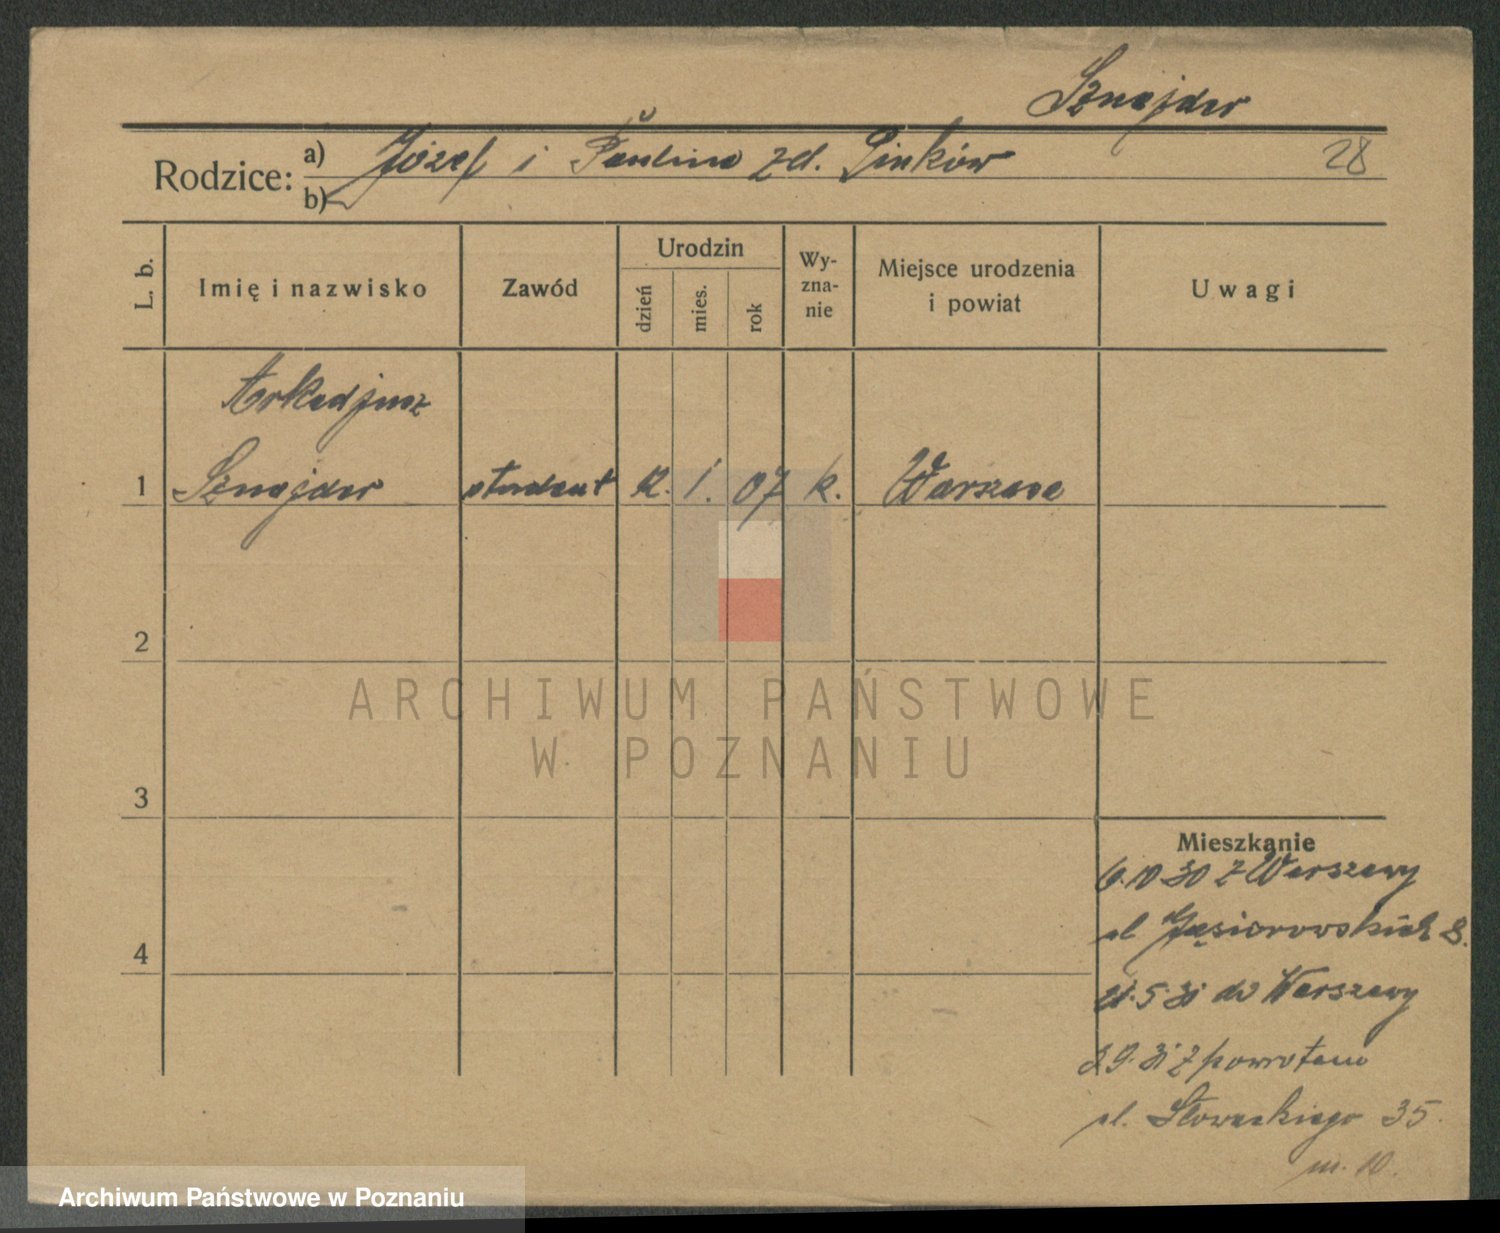 Sznajder
Rodzice: a) Józef i Paulina zd. Pinków 28
b)
L. b.
Imię i nazwisko
Zawód
Urodzin
dzień
mies.
rok
Wy-
zna-
nie
Miejsce urodzenia
i powiat
Uwagi
Arkadjusz
1 Sznajder student 12. 1. 07 k. Warszawa
2
3
4
Mieszkanie
6.10 30 z Warszawy
ul. Gąsiorowskich 8.
21.5 31 do Warszawy
2 9. 31 z powrotem
ul. Słowackiego 35.
m. 10.
ARCHIWUM PAŃSTWOWE
W POZNANIU
Archiwum Państwowe w Poznaniu